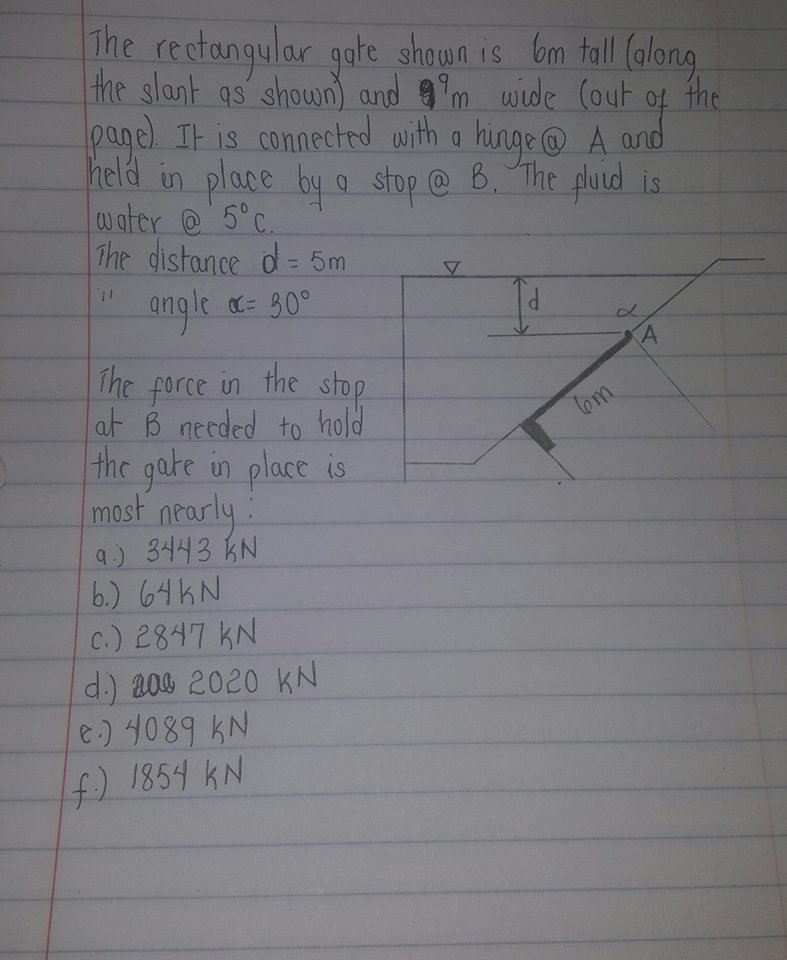 The rectangular gate shown is 6m tall (along
the slant as shown) and 9m wide (out of the
page). It is connected with a hinge @ A and
held in place by a stop @ B. The fluid is
water @ 5°c.
The distance d = 5m
" angle α = 30°
d
α
A
6m
The force in the stop
at B needed to hold
the gate in place is
most nearly:
a.) 3443 kN
b.) 64kN
c.) 2847 kN
d.) 2020 kN
e.) 4089 kN
f.) 1854 kN